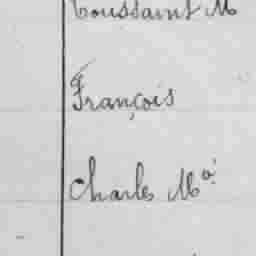 Toussaint M
François
Charles Mª